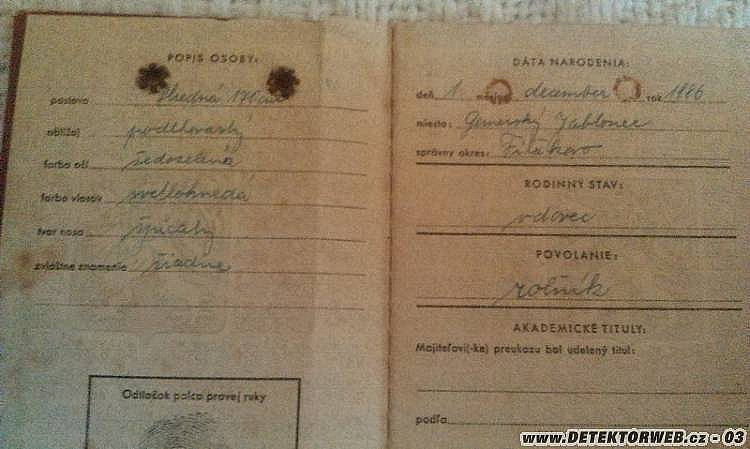 POPIS OSOBY:
postava stredná 170 cm
obličaj podlhovastý
farba očí šedozelené
farba vlasov svetlohnedá
tvar nosa špicatý
zvláštne znamenie žiadne
Odtlačok palca pravej ruky
DÁTA NARODENIA:
deň 1. december rok 1886
miesto: Gemerský Jablonec
správny okres: Fiľakovo
RODINNÝ STAV:
vdovec
POVOLANIE:
roľník
AKADEMICKÉ TITULY:
Majiteľovi(-ke) preukazu bol udelený titul:
podľa
www.DETEKTORWEB.cz - 03